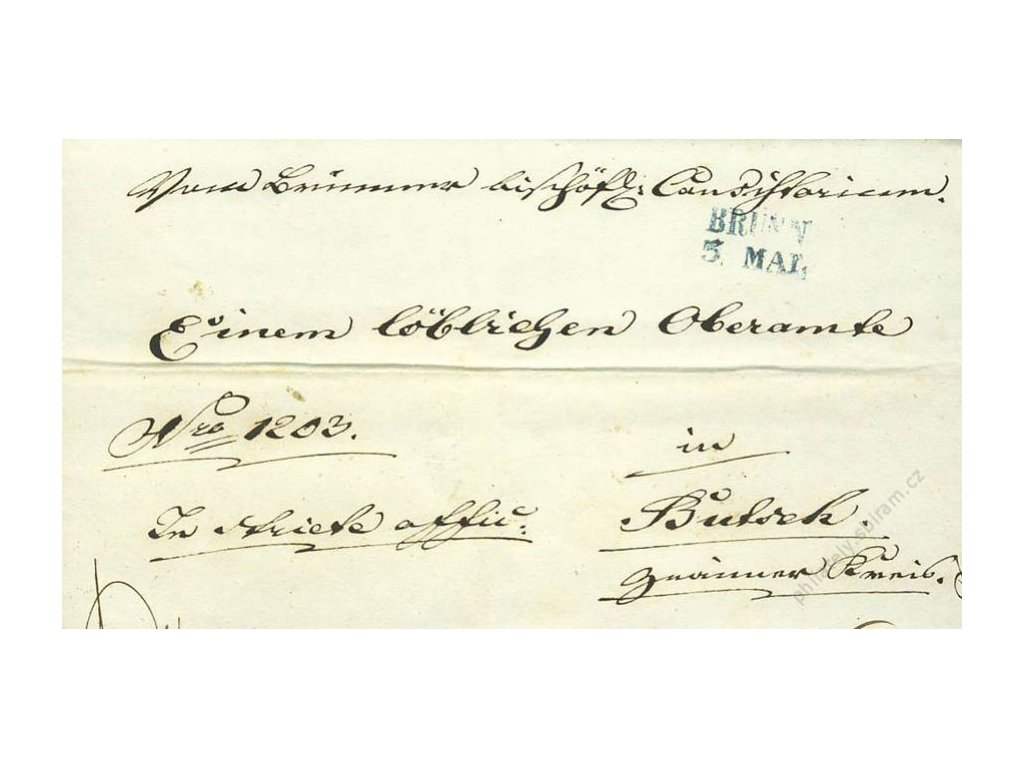 Vom Brünner bischöfl: Consistorium.
BRÜNN
3 MAI.
Einem löblichen Oberamte
Nro 1203.
in
In stricte officio:
Butsch.
Znaimer Kreis.
philately.solram.cz